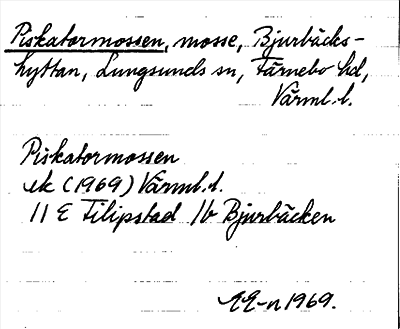 Piskatormossen, mosse, Bjurbäcks-
hyttan, Lungsunds sn, Färnebo hd,
Värml. l.
Piskatormossen
ek (1969) Värml. l.
11 E Filipstad 1b Bjurbäcken
1969.